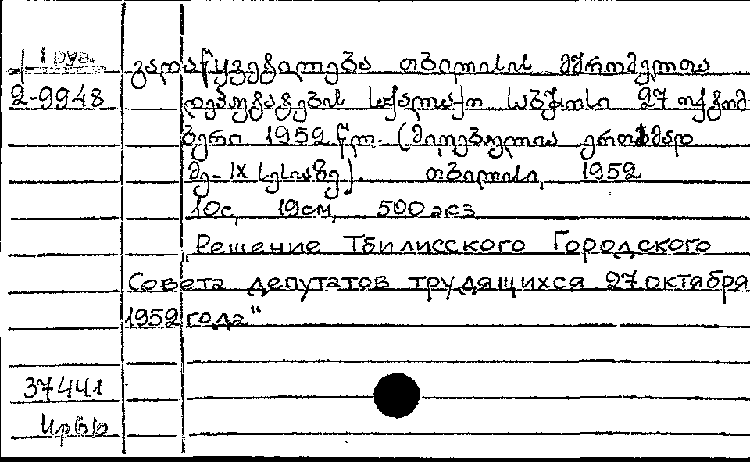 1 груз.
2-9948
გადაწყვეტილება თბილისის მშრომელთა
დეპუტატების საქალაქო საბჭოსი 27 ოქტომ
ბერი 1952 წლ. (მიღებულია ერთხმად
მე-IX სესიაზე). თბილისი, 1952
10с, 19см, 500 ეგз
„Решение Тбилисского Городского
Совета депутатов трудящихся 27 октября
1952 года“
37441